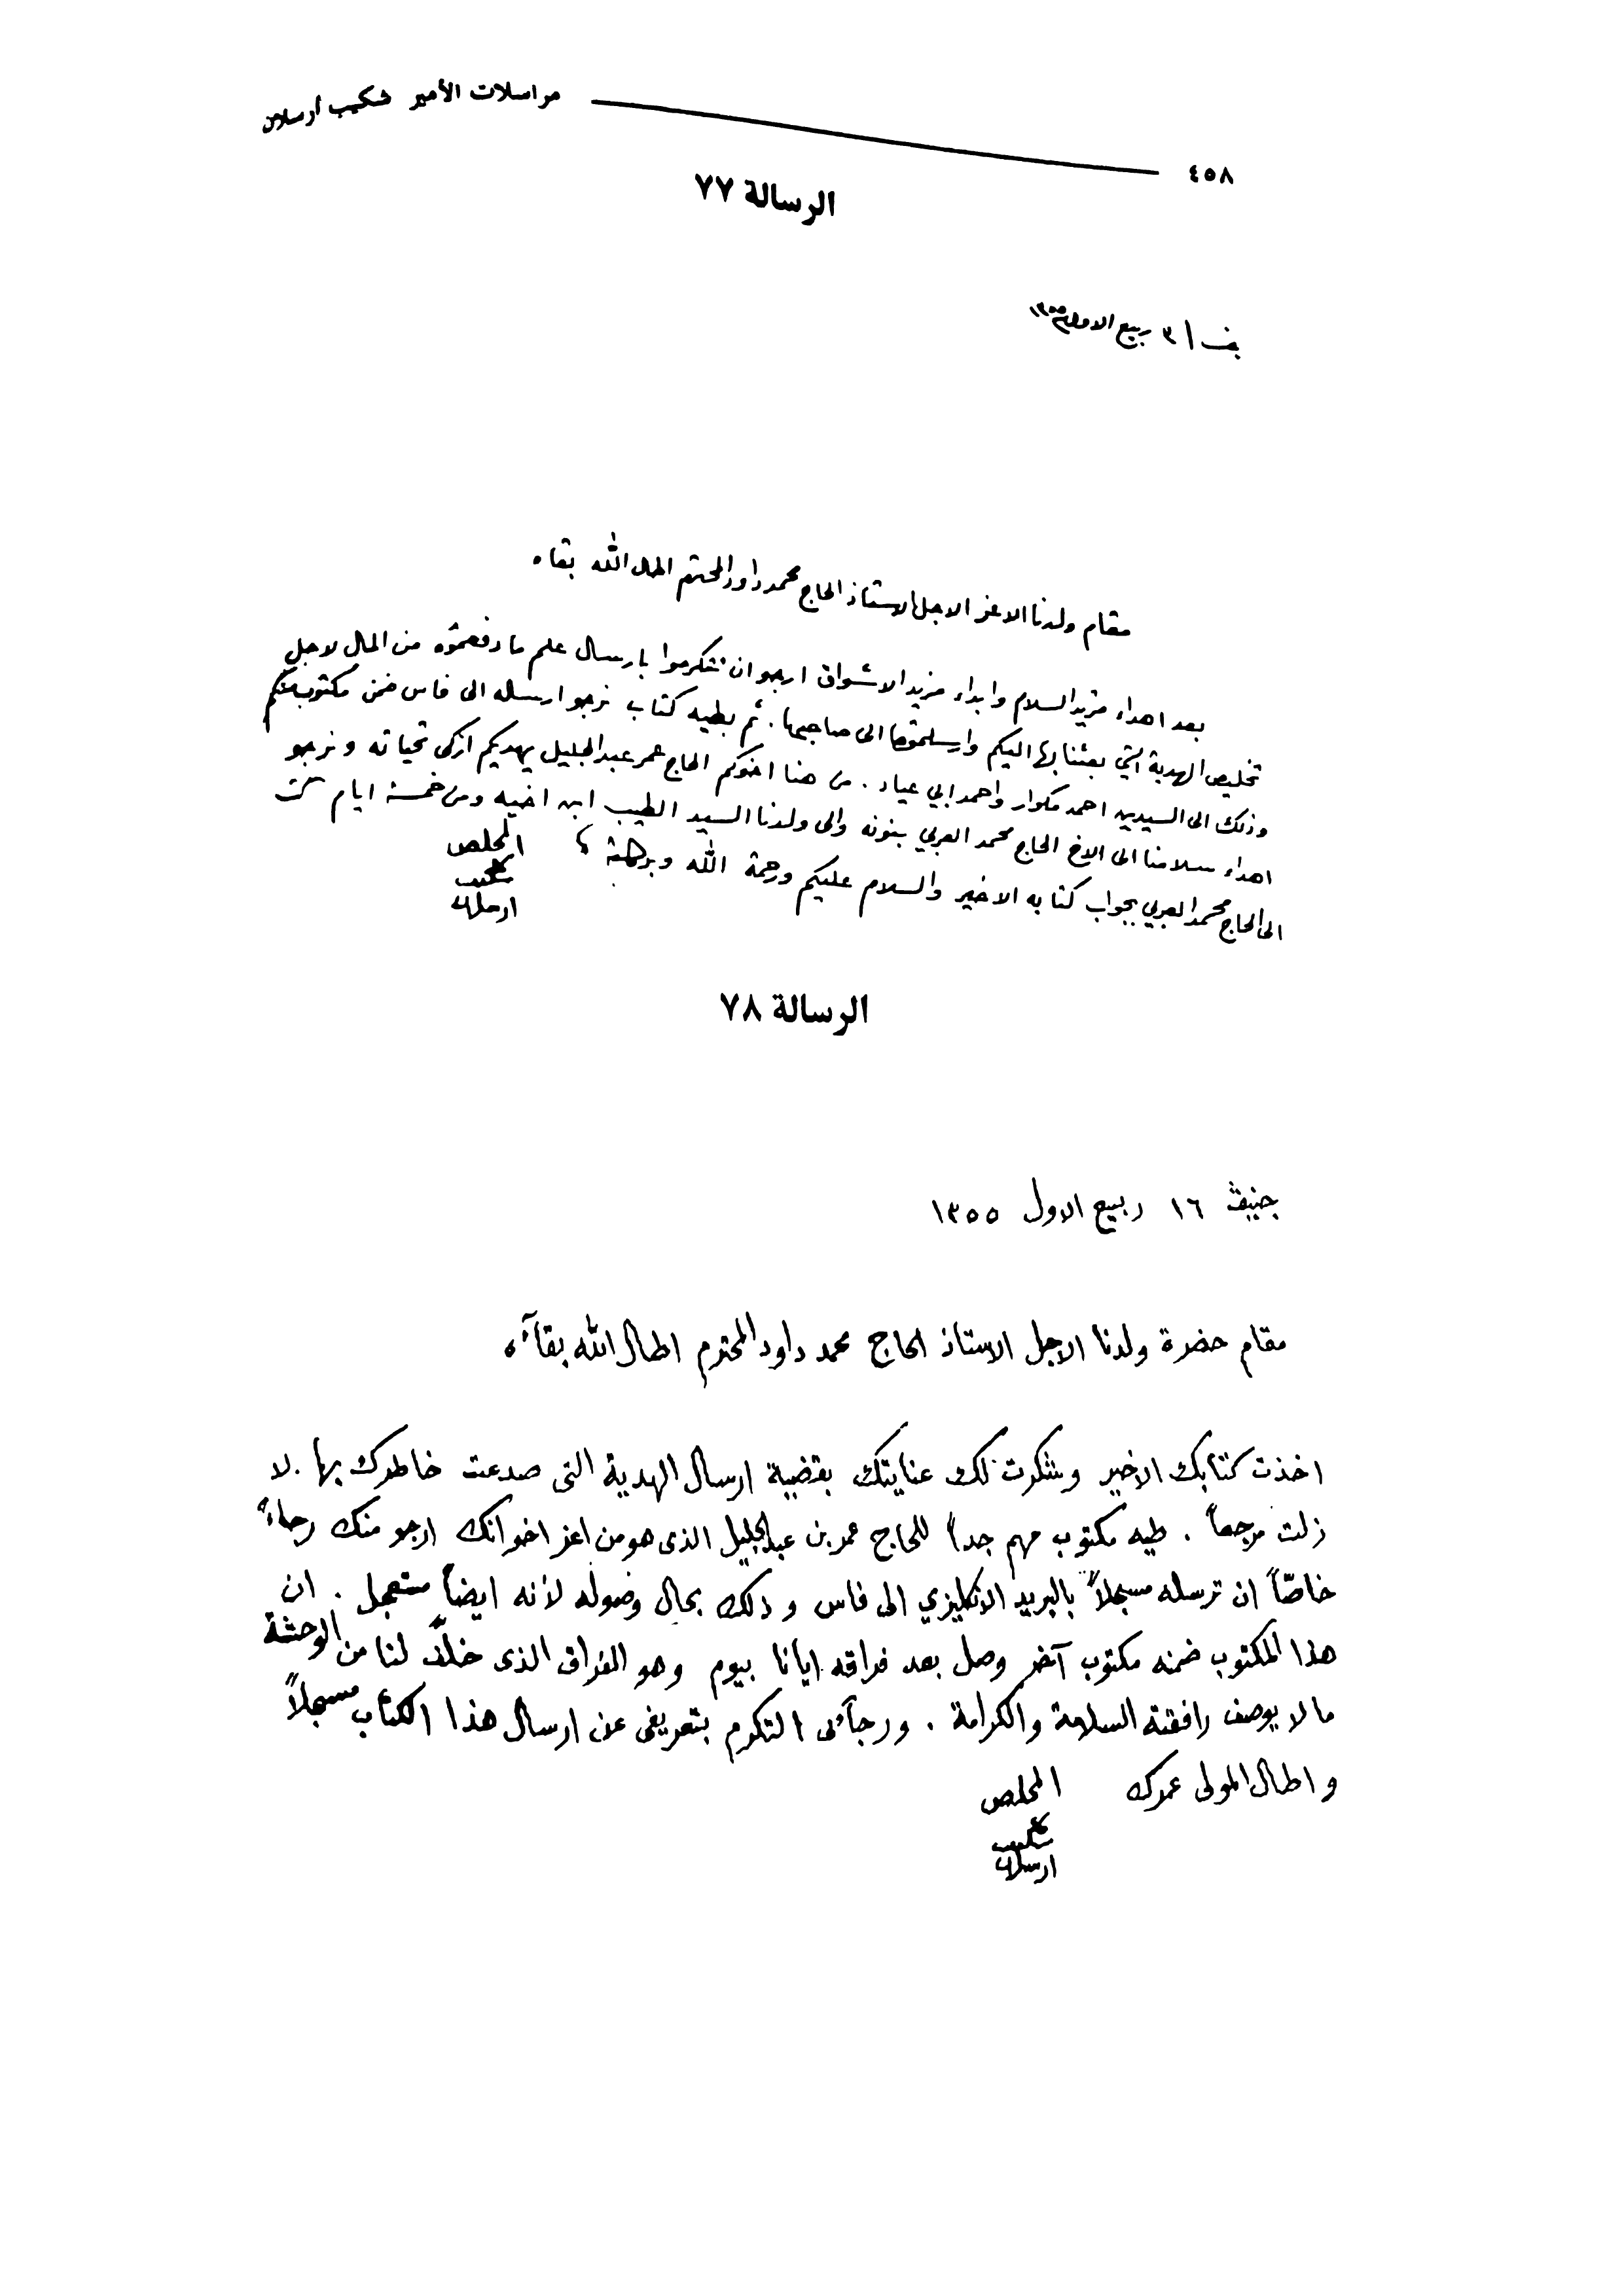 ٤٥٨ مراسلات الأمير شكيب أرسلان
الرسالة ٧٧
ربيع الاول ١٣٥٥
مقام ولدنا الاعز الاجل الاستاذ الحاج محمد داود المحترم اطال الله بقاه
بعد اهداء مزيد السلام وابداء مزيد الاشواق ارجو ان تتكرموا بارسال علم ما دفعتموه من المال لاجل
تخليص الهدية التي بعثنا بها اليكم وارسلتموها الى صاحبها . ثم بطيه كتاب نرجو ارساله الى فاس ضمن مكتوب منكم
وذلك الى السيدين احمد مكوار واحمد ابي عياد . من هنا اخوكم الحاج عمر عبد الجليل يهديكم ازكى تحياته ونرجو
اهداء سلامنا الى الاخ الحاج محمد العربي بنونه والى ولدنا السيد الطيب ابن اخيه ومن خمسة ايام كتبت
الى الحاج محمد العربي بجواب كتابه الاخير والسلام عليكم ورحمة الله وبركاته
المخلص
شكيب
ارسلان
الرسالة ٧٨
جنيف ١٦ ربيع الاول ١٣٥٥
مقام حضرة ولدنا الاجل الاستاذ الحاج محمد داود المحترم اطال الله بقآءه
اخذت كتابك الاخير وشكرت لك عنايتك بقضية ارسال الهدية التى صدعت خاطرك بها . لا
زلت مرجعاً . طيه مكتوب مهم جداً للحاج عمر بن عبد الجليل الذى هو من اعز اخوانك ارجو منك رجاءً
خاصّاً ان ترسله مسجلاً بالبريد الانكليزي الى فاس وذلك بحال وصوله لأنه ايضاً مستعجل . ان
هذا المكتوب ضمنه مكتوب آخر وصل بعد فراقه ايانا بيوم وهو الفراق الذى خلّف لنا من الوحشة
ما لا يوصف رافقته السلامة والكرامة . ورجآئى التكرم بتعريفى عن ارسال هذا الكتاب مسجلاً
واطال المولى عمرك المخلص
شكيب
ارسلان